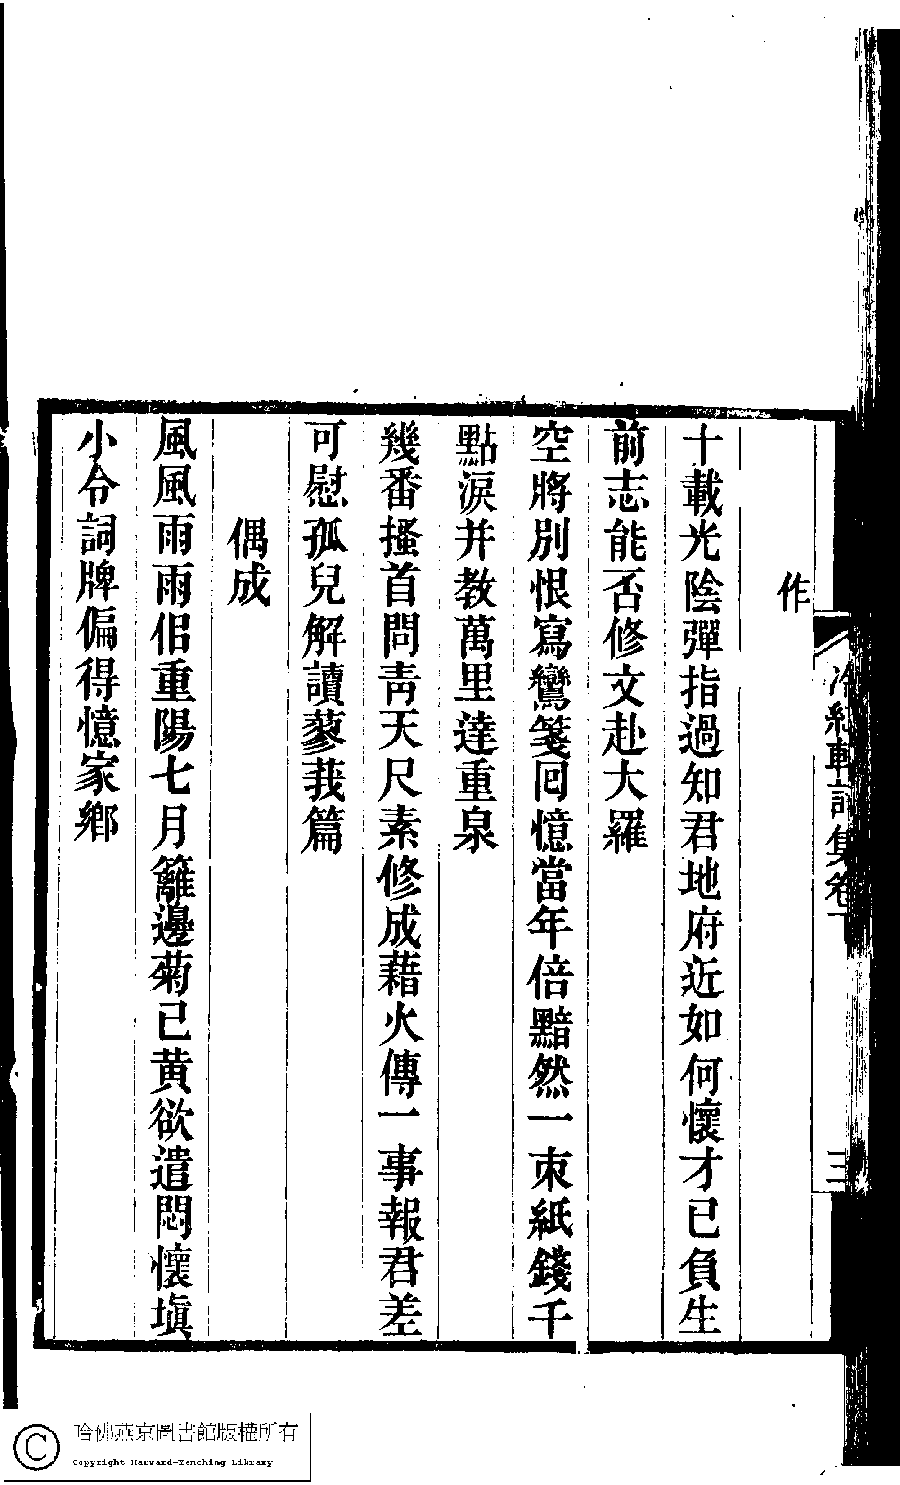 作
十載光陰彈指過知君地府近如何懷才已負生
前志能否修文赴大羅
空將別恨寫鸞箋回憶當年倍黯然一束紙錢千
點淚并教萬里達重泉
幾番搔首問靑天尺素修成藉火傳一事報君差
可慰孤兒解讀蓼莪篇
偶成
風風雨雨侶重陽七月籬邊菊已黄欲遣悶懷塡
小令詞牌偏得憶家鄉
冷紅軒詩集卷
三
哈佛燕京圖書館版權所有
Copyright Harvard-Yenching Library